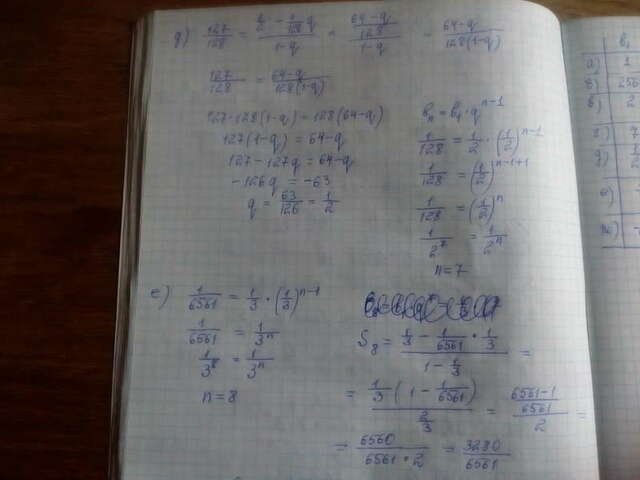 д) 127/128 = (1/2 - 1/128 q)/(1-q) = ((64-q)/128)/(1-q) = (64-q)/(128(1-q))
127/128 = (64-q)/(128(1-q))
127·128(1-q) = 128(64-q)
127(1-q) = 64-q
127-127q = 64-q
-126q = -63
q = 63/126 = 1/2
bₙ = b₁·q^(n-1)
1/128 = 1/2 · (1/2)^(n-1)
1/128 = (1/2)^(n-1+1)
1/128 = (1/2)^n
1/2^7 = 1/2^n
n=7
е) 1/6561 = 1/3 · (1/3)^(n-1)
1/6561 = 1/3^n
1/3^8 = 1/3^n
n=8
S₈ = (1/3 - 1/6561 · 1/3)/(1 - 1/3) =
= (1/3 (1 - 1/6561))/(2/3) = ((6561-1)/6561)/2 =
= 6560/(6561·2) = 3280/6561
b₁
а) 1
б) 256
в) 2
г)
д) 1/2
е)
ж)